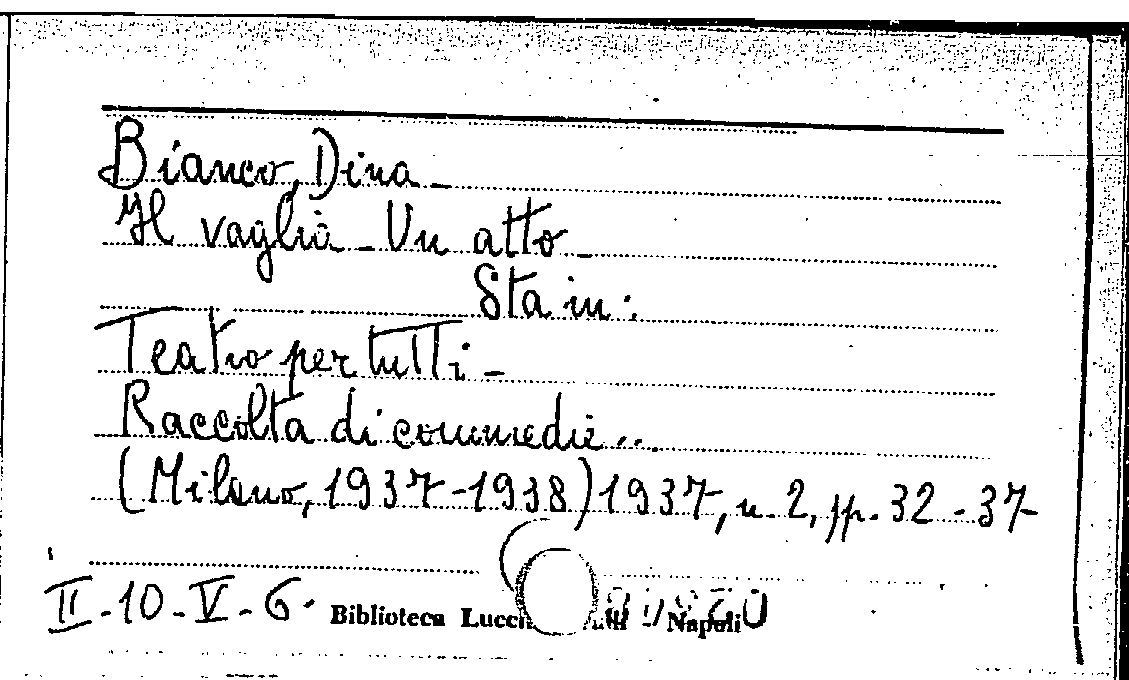 Bianco, Dina -
Il vaglia - Un atto -
Sta in:
Teatro per tutti -
Raccolta di commedie ..
(Milano, 1937-1938) 1937, n. 2, pp. 32 - 37
II - 10 - V - 6. Biblioteca Napoli